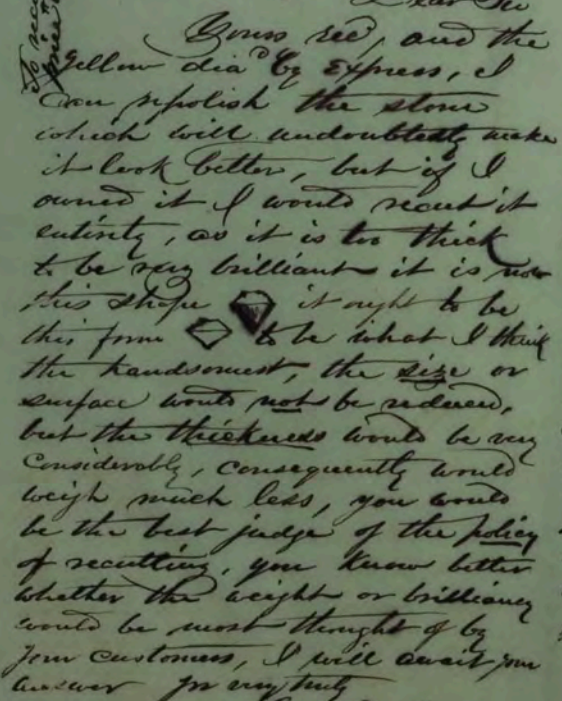 Dear Sir
Yours recd, and the
Yellow diad by Express, I
can repolish the stone
which will undoubtedly make
it look better, but if I
owned it I would recut it
entirely, as it is too thick
to be very brilliant it is now
this shape it ought to be
this form to be what I think
the handsomest, the size or
surface would not be reduced,
but the thickness would be very
considerably, consequently would
weigh much less, you would
be the best judge of the policy
of recutting, you know better
whether the weight or brilliancy
would be most thought of by
your customers, I will await your
answer yrs very truly